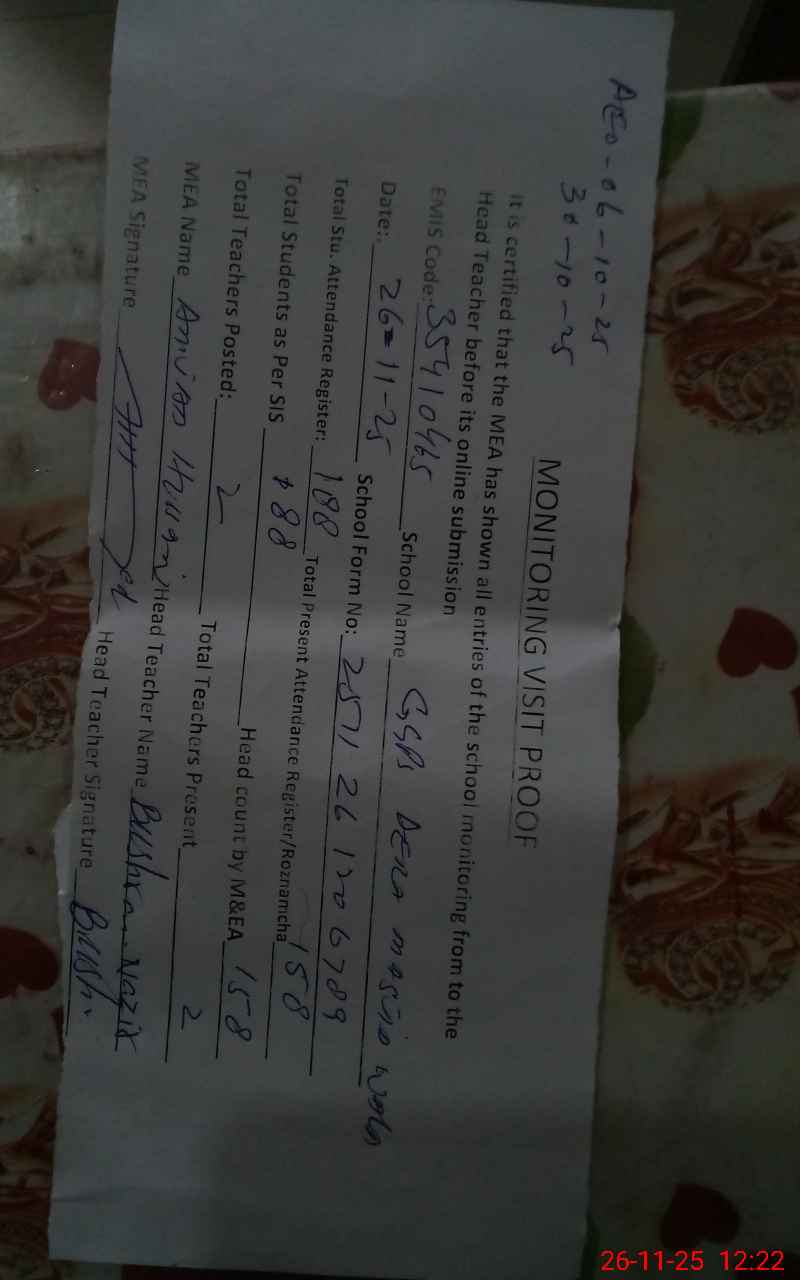 AEO-06-10-25
30-10-25
MONITORING VISIT PROOF
It is certified that the MEA has shown all entries of the school monitoring from to the
Head Teacher before its online submission
EMIS Code: 35410465 School Name GGPS Dera
Date: 26-11-25 School Form No: 2511261206789
Total Stu. Attendance Register: 188 Total Present Attendance Register/Roznamcha 158
Total Students as Per SIS 188 Head count by M&EA 158
Total Teachers Posted: 2 Total Teachers Present 2
MEA Name Head Teacher Name Bushra Nazir
MEA Signature Head Teacher Signature Bushr
26-11-25 12:22